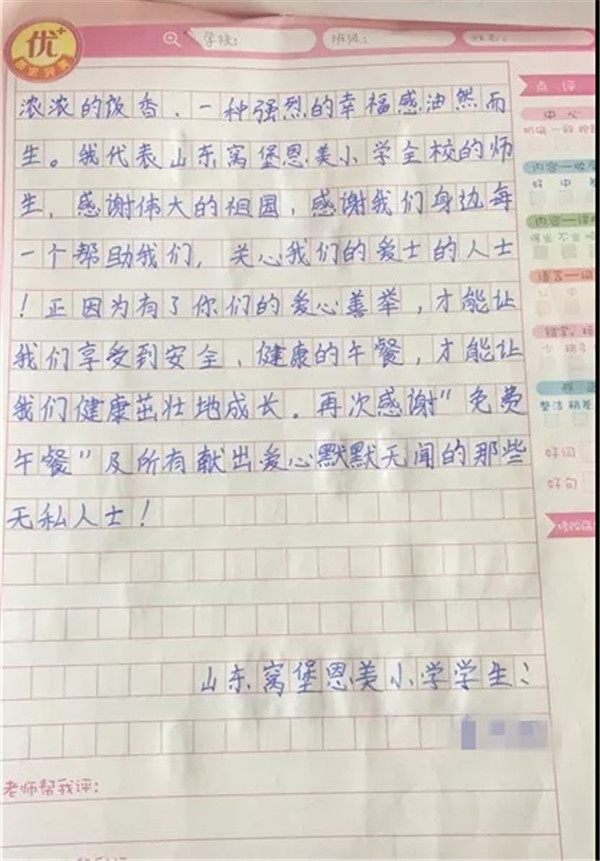 优+
学校:
班级:
姓名:
浓浓的饭香、一种强烈的幸福感油然而
生。我代表山东窝堡恩美小学全校的师
生,感谢伟大的祖国,感谢我们身边每
一个帮助我们,关心我们的爱士的人士
!正因为有了你们的爱心善举,才能让
我们享受到安全、健康的午餐,才能让
我们健康茁壮地成长。再次感谢"免费
午餐"及所有献出爱心默默无闻的那些
无私人士!
山东窝堡恩美小学学生:
老师帮我评:
点评
中心
内容一
好 中 差
内容一
语言一
错字、
点
整洁
好词
好句